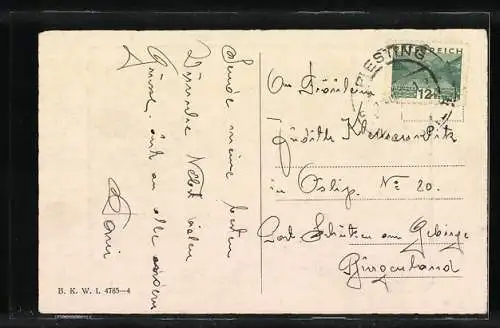 Sende meine besten
Wünsche Nebst vielen
Grüsse. auch an alle andern
B. K. W. I. 4785—4
PIESTING
REICH
12
An Fräulein
Judith
in Oslip. No 20.
Post Schützen am Gebirge
Burgenland